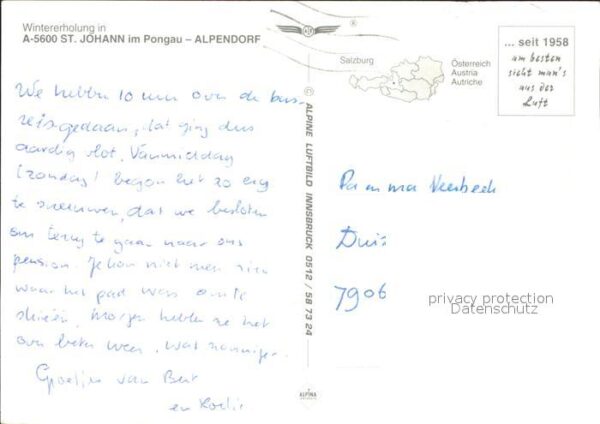 Wintererholung in
A-5600 ST. JOHANN im Pongau – ALPENDORF
We hebben 10 uur over de bus-
reis gedaan, dat ging dus
aardig vlot. Vanmiddag
(zondag) begon het zo erg
te sneeuwen, dat we besloten
om terug te gaan naar ons
pension. Je kon niet meer zien
waar het pad was om te
skiën. Morgen hebben ze het
over beter weer, wat zonniger.
Groetjes van Bert
en
© ALPINE LUFTBILD INNSBRUCK 0512 / 58 73 24
ALPINA
Salzburg
Österreich
Austria
Autriche
... seit 1958
am besten
sieht man's
aus der
Luft
Pa en ma
7906
privacy protection
Datenschutz